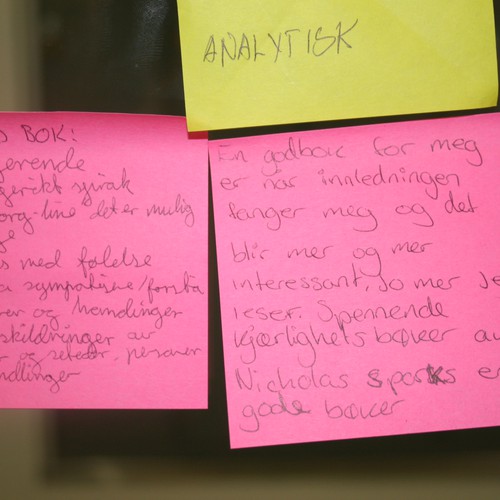 ANALYTISK
BOK:
språk
det er mulig
med følelse
sympatisere/forstå
og handlinger
skildringer av
og steder, personer
En godbok for meg
er når innledningen
fanger meg og det
blir mer og mer
interessant, jo mer je
leser. Spennende
kjærlighetsbøker av
Nicholas Sparks er
gode bøker